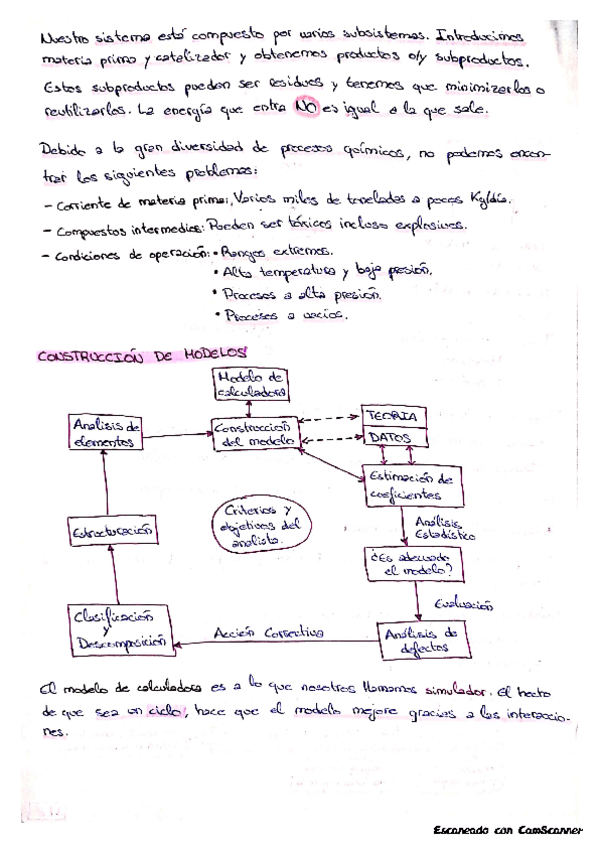 Nuestro sistema está compuesto por varios subsistemas. Introducimos
materia prima y catalizador y obtenemos productos o/y subproductos.
Estos subproductos pueden ser residuos y tenemos que minimizarlos o
reutilizarlos. La energía que entra NO es igual a la que sale.
Debido a la gran diversidad de procesos químicos, no podemos encon-
trar los siguientes problemas:
- Corriente de materia prima: Varios miles de toneladas a pocas Kg/día.
- Compuestos intermedios: Pueden ser tóxicos incluso explosivos.
- Condiciones de operación: • Rangos extremos.
• Alta temperatura y baja presión.
• Procesos a alta presión.
• Procesos a vacíos.
CONSTRUCCIÓN DE MODELOS
Modelo de
calculadora
Analisis de
elementos
Construccion
del modelo
TEORIA
DATOS
Estimación de
coeficientes
Criterios y
objetivos del
analista.
Análisis
Estadístico
Estructuración
¿Es adecuado
el modelo?
Evaluación
Clasificación
y
Descomposición
Acción Correctiva
Análisis de
defectos
El modelo de calculadora es a lo que nosotros llamamos simulador. El hecho
de que sea un ciclo, hace que el modelo mejore gracias a las interaccio-
nes.
Escaneado con CamScanner